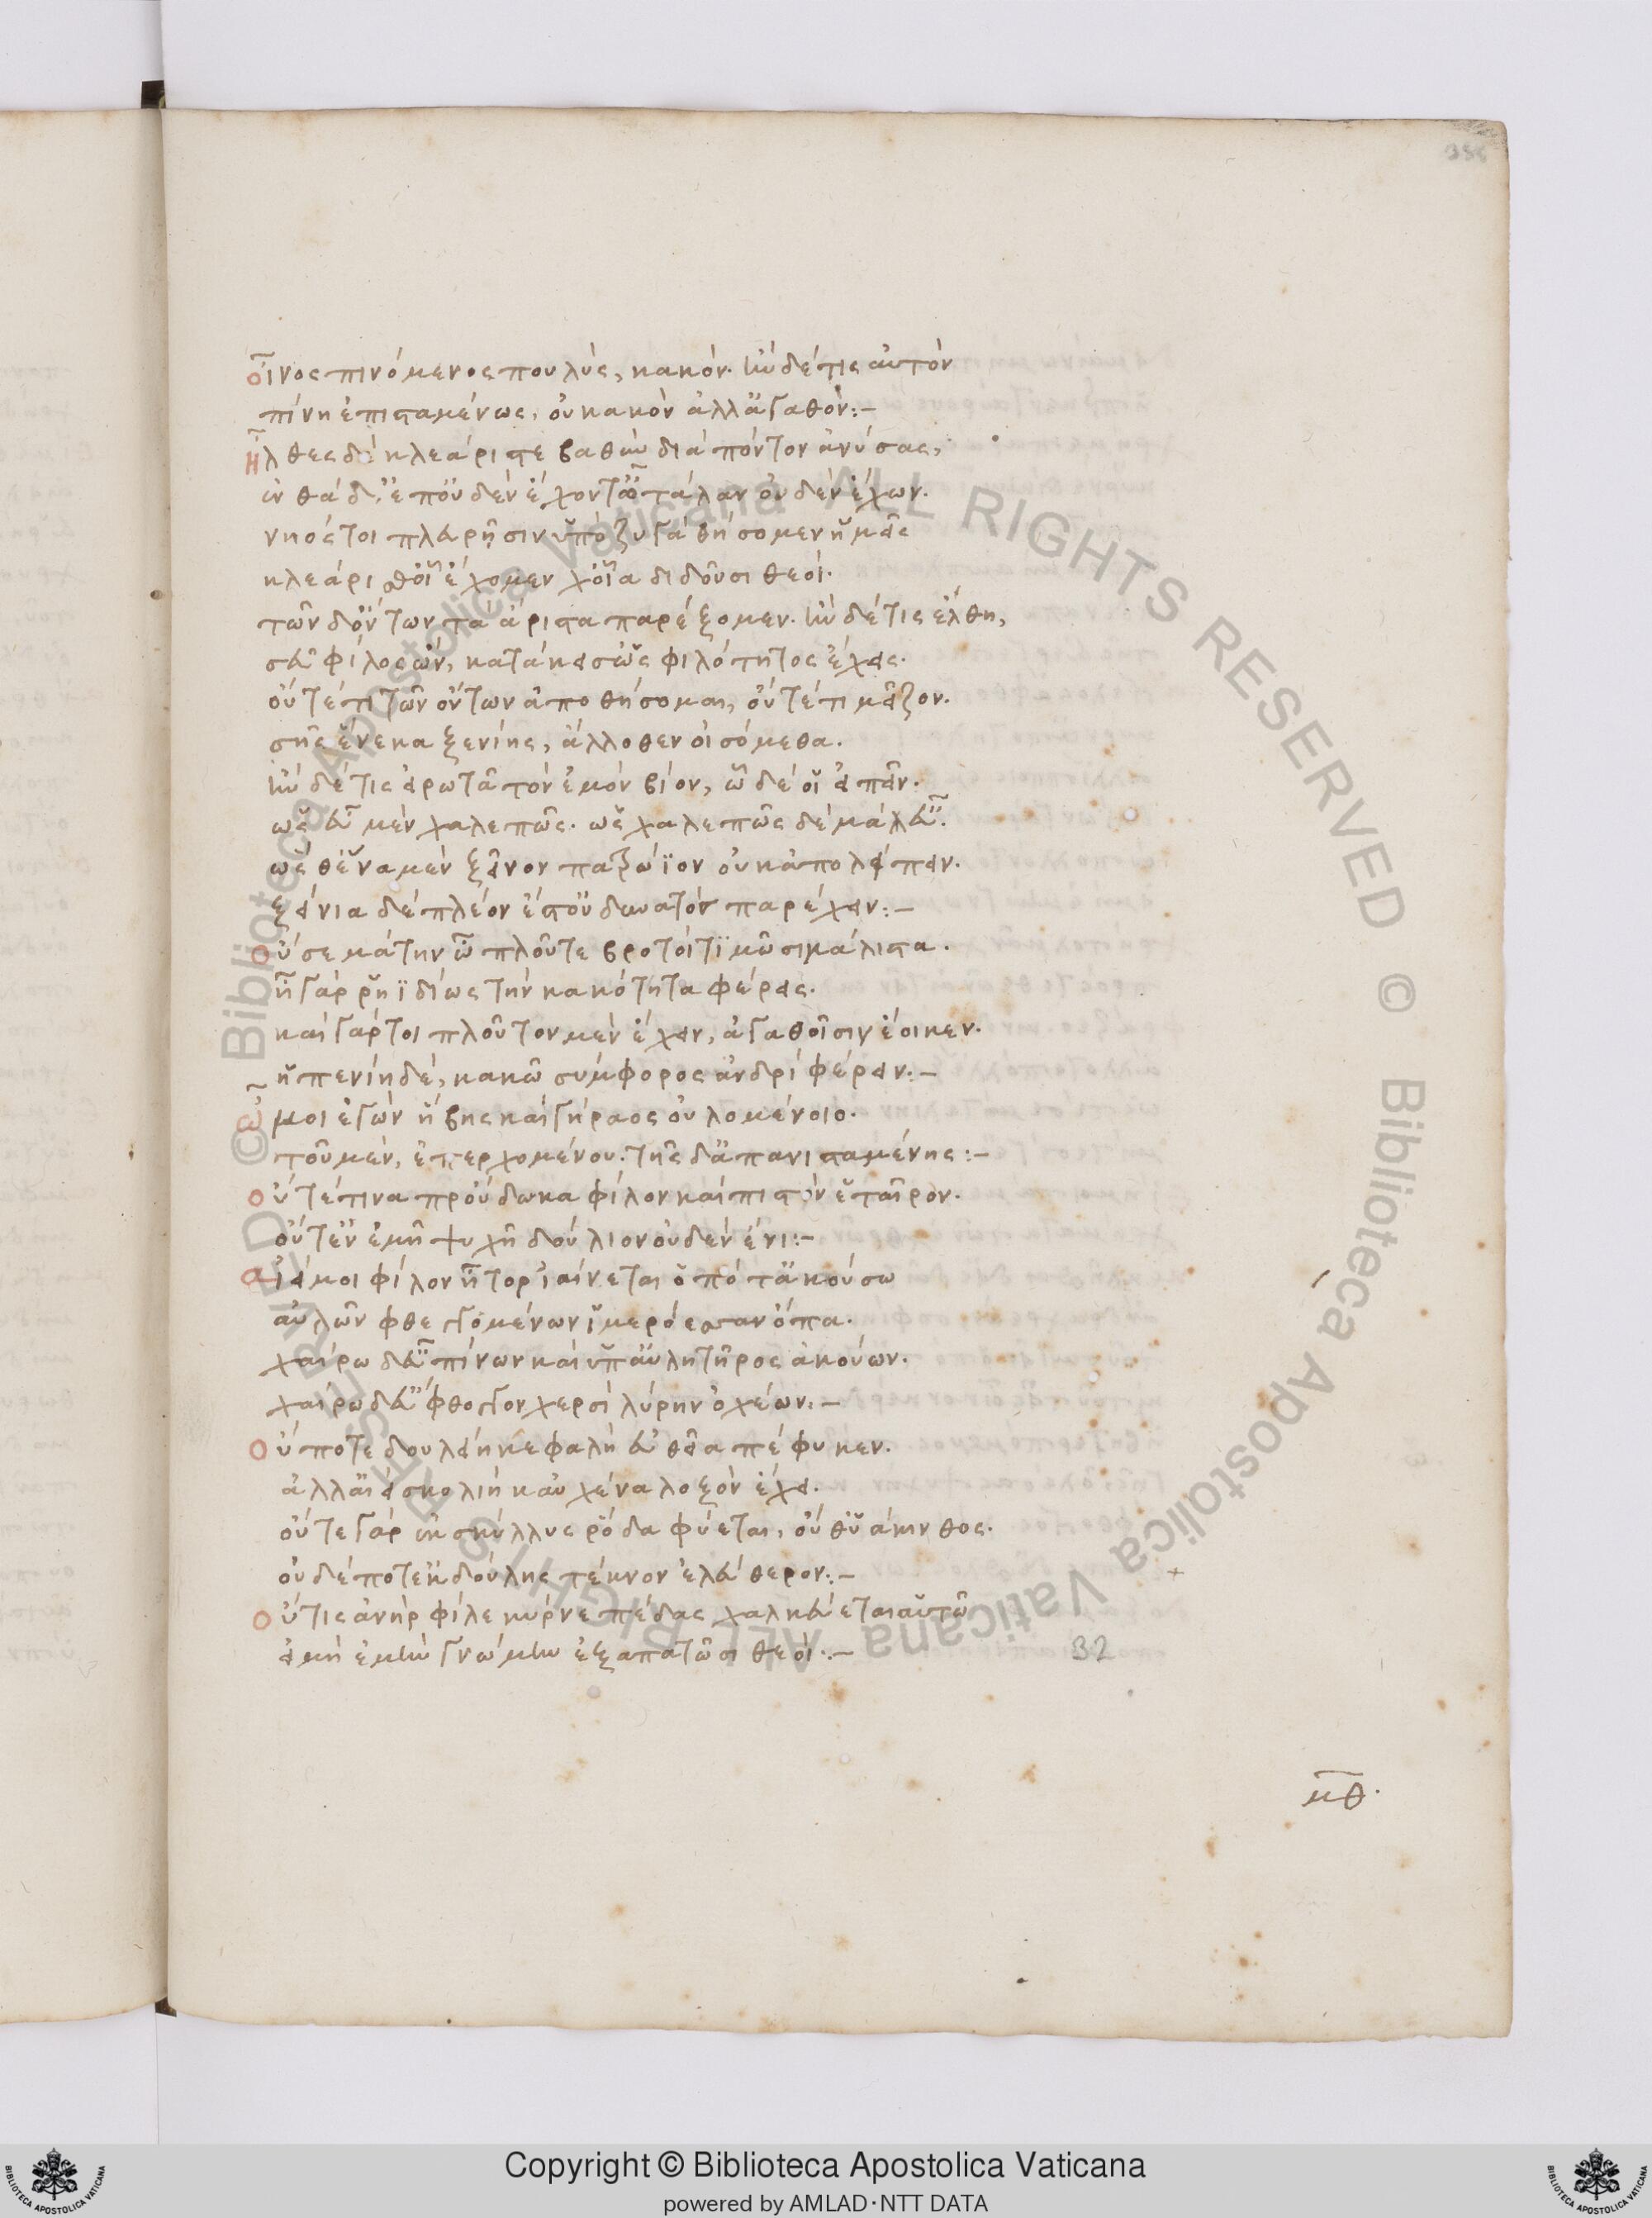 οἶνος πινόμενος πουλὺς, κακόν. ἢν δέ τις αὐτὸν
πίνῃ ἐπισταμένως, οὐ κακὸν ἀλλ' ἀγαθόν:–
ἦλθες δὴ κλεάριστε βαθὺν διὰ πόντον ἀνύσας,
ἐνθάδ' ἐπ' οὐδὲν ἔχοντ' ὦ τάλαν οὐδὲν ἔχων.
νηός τοι πλευρῇσιν ὑπὸ ζυγὰ θήσομεν ἡμεῖς
κλεάρισθ' οἷ' ἔχομεν χ' οἷα διδοῦσι θεοί.
τῶν δ' ὄντων τἀ ἄριστα παρέξομεν. ἢν δέ τις ἔλθῃ,
σεῦ φίλος ὢν, κατάκεισ' ὡς φιλότητος ἔχεις.
οὔτέ τι τῶν ὄντων ἀποθήσομαι, οὔτέ τι μεῖζον.
σῆς ἕνεκα ξενίης, ἄλλοθεν οἰσόμεθα.
ἢν δέ τις εἰρωτᾶ τὸν ἐμὸν βίον, ὧδέ οἱ εἰπεῖν.
ὡς εὖ μὲν χαλεπῶς. ὡς χαλεπῶς δὲ μάλ' εὖ.
ὡς θ' ἕνα μὲν ξεῖνον πατρώϊον οὐκ ἀπολείπειν.
ξείνια δὲ πλέον ἔστ' οὐ δυνατὸν παρέχειν:–
οὔ σε μάτην ὦ πλοῦτε βροτοὶ τιμῶσι μάλιστα.
ἦ γὰρ ῥηϊδίως τὴν κακότητα φέρεις.
καὶ γάρ τοι πλοῦτον μὲν ἔχειν, ἀγαθοῖσιν ἔοικεν.
ἡ πενίη δὲ, κακῶ σύμφορος ἀνδρὶ φέρειν:–
ὤ μοι ἐγὼν ἥβης καὶ γήραος οὐλομένοιο.
τοῦ μὲν, ἐπερχομένου. τῆς δ' ἀπανισταμένης:–
οὔτέ τινα προύδωκα φίλον καὶ πιστὸν ἑταῖρον.
οὔτ' ἐν ἐμῇ ψυχῇ δούλιον οὐδὲν ἔνι:–
αἰεί μοι φίλον ἦτορ ἰαίνεται ὁπότ' ἀκούσω
αὐλῶν φθεγγομένων ἱμερόεσσαν ὄπα.
χαίρω δ' εὖ πίνων καὶ ὑπ' αὐλητῆρος ἀκούων.
χαίρω δ' εὔφθογγον χερσὶ λύρην ὀχέων:–
οὔποτε δουλείη κεφαλὴ εὐθεῖα πέφυκεν.
ἀλλ' αἰεὶ σκολιὴ καὐχένα λοξὸν ἔχει.
οὔτε γὰρ ἐκ σκύλλης ῥόδα φύεται, οὐθ' ὑάκινθος.
οὐδέποτ' ἐκ δούλης τέκνον ἐλεύθερον:–
οὔτις ἀνὴρ φίλε κύρνε πέδας χαλκεύεται αὑτῶ
εἰ μὴ ἐμὴν γνώμην ἐξαπατῶσι θεοί:–
32
κθ.
Copyright © Biblioteca Apostolica Vaticana
powered by AMLAD·NTT DATA